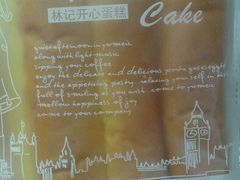 林记开心蛋糕
Cake
quiet afternoon in yumeii
along with light music
sipping your coffee
enjoy the delicate and delicious pasta
and the appetizing pastry, relaxing your self in the
full of smiling as you wish come to yumeii
mellow happiness of joy
come to your company